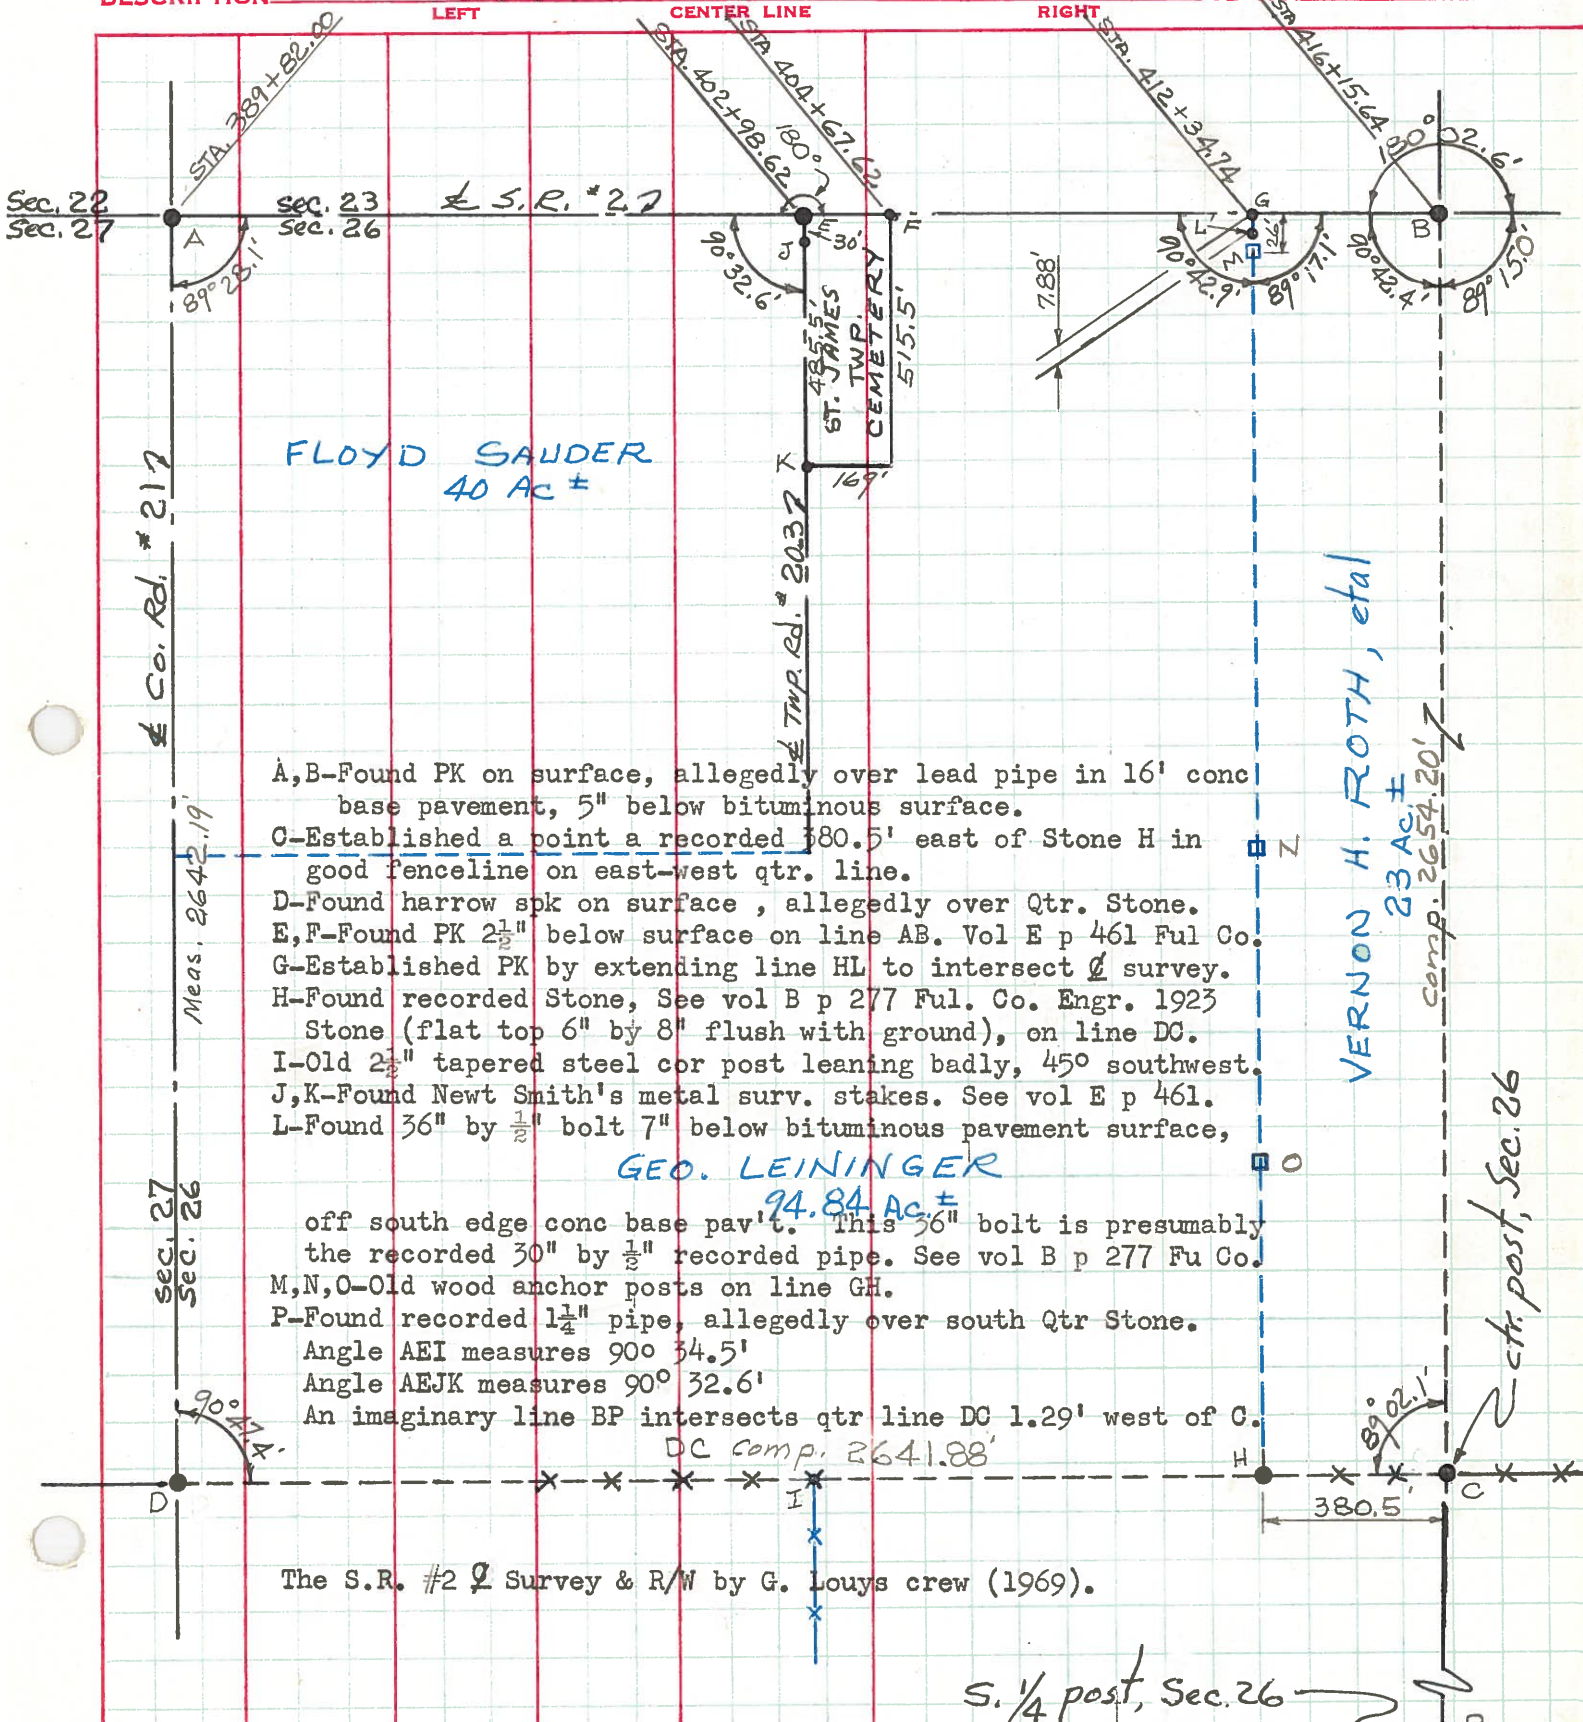 LEFT
CENTER LINE
RIGHT
STA. 389+82.00
STA. 402+98.62
STA 404+67.62
STA. 412+34.74
STA 416+15.64
Sec. 22
Sec. 27
sec. 23
Sec. 26
℄ S.R. #2
A
89° 28.1'
180°
E
30'
J
F
90° 32.6'
485.5'
ST. JAMES
TWP.
CEMETERY
515.5'
K
169'
G
L
26'
M
90° 42.9'
89° 17.1'
7.88'
180° 02.6'
B
90° 42.4'
89° 15.0'
FLOYD SAUDER
40 Ac ±
℄ Co. Rd. #21
℄ Twp. Rd. #20.3
Meas. 2642.19'
VERNON H. ROTH, etal
23 Ac. ±
Comp. 2654.20'
A,B-Found PK on surface, allegedly over lead pipe in 16' conc
base pavement, 5" below bituminous surface.
C-Established a point a recorded 380.5' east of Stone H in
good fenceline on east-west qtr. line.
N
D-Found harrow spk on surface , allegedly over Qtr. Stone.
E,F-Found PK 2½" below surface on line AB. Vol E p 461 Ful Co.
G-Established PK by extending line HL to intersect ℄ survey.
H-Found recorded Stone, See vol B p 277 Ful. Co. Engr. 1923
Stone (flat top 6" by 8" flush with ground), on line DC.
I-Old 2½" tapered steel cor post leaning badly, 45° southwest.
J,K-Found Newt Smith's metal surv. stakes. See vol E p 461.
L-Found 36" by ½" bolt 7" below bituminous pavement surface,
GEO. LEININGER
94.84 Ac. ±
O
off south edge conc base pav't. This 36" bolt is presumably
the recorded 30" by ½" recorded pipe. See vol B p 277 Fu Co.
M,N,O-Old wood anchor posts on line GH.
P-Found recorded 1¼" pipe, allegedly over south Qtr Stone.
Angle AEI measures 90° 34.5'
Angle AEJK measures 90° 32.6'
An imaginary line BP intersects qtr line DC 1.29' west of C.
Sec. 27
Sec. 26
ctr. post, Sec. 26
90° 47.4'
89° 02.1'
DC comp. 2641.88'
D
I
H
C
380.5'
The S.R. #2 ℄ Survey & R/W by G. Louys crew (1969).
S. 1/4 post, Sec. 26